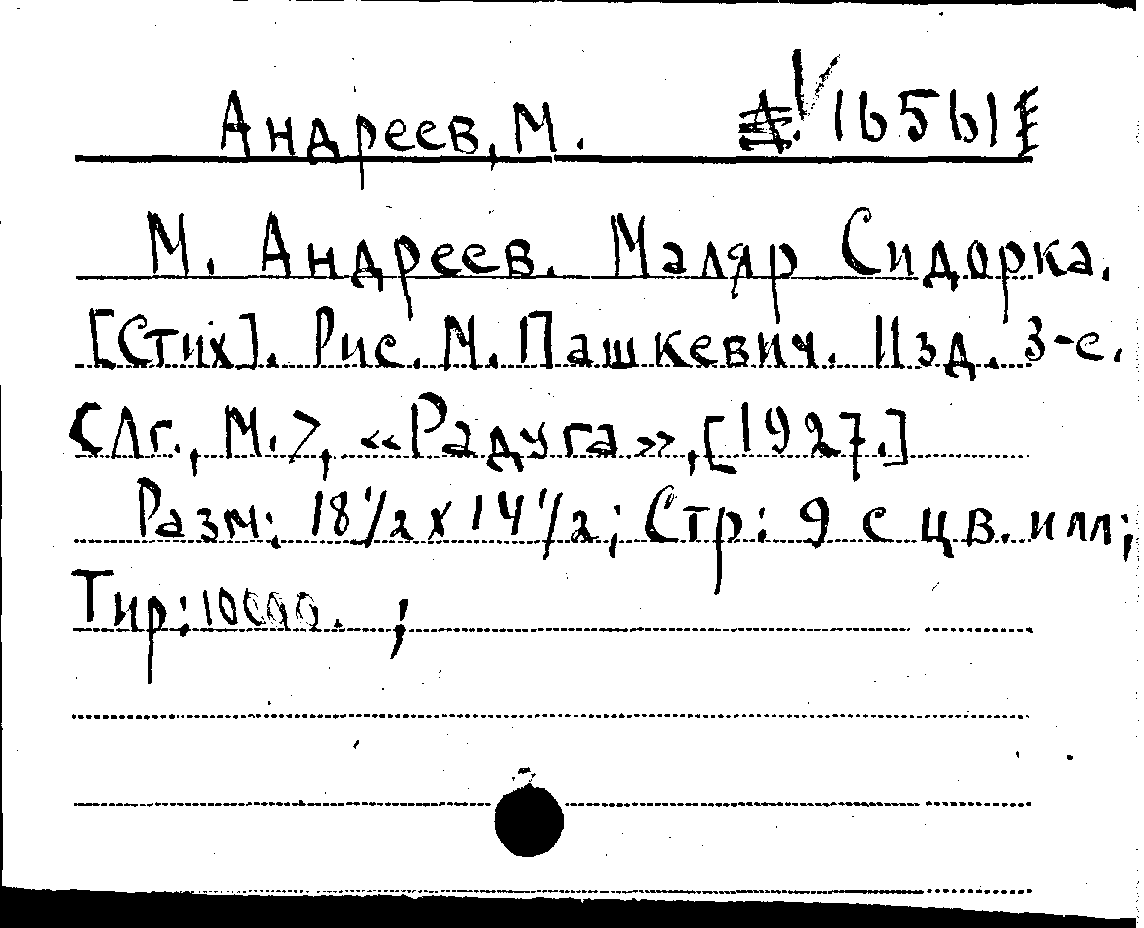 Андреев, М. 16561
М. Андреев. Маляр Сидорка.
[Стих]. Рис. М. Пашкевич. Изд. 3-е.
<Лг., М.>, «Радуга», [1927.]
Разм: 18 1/2 х 14 1/2; Стр: 9 с цв. илл;
Тир: 10000. ;